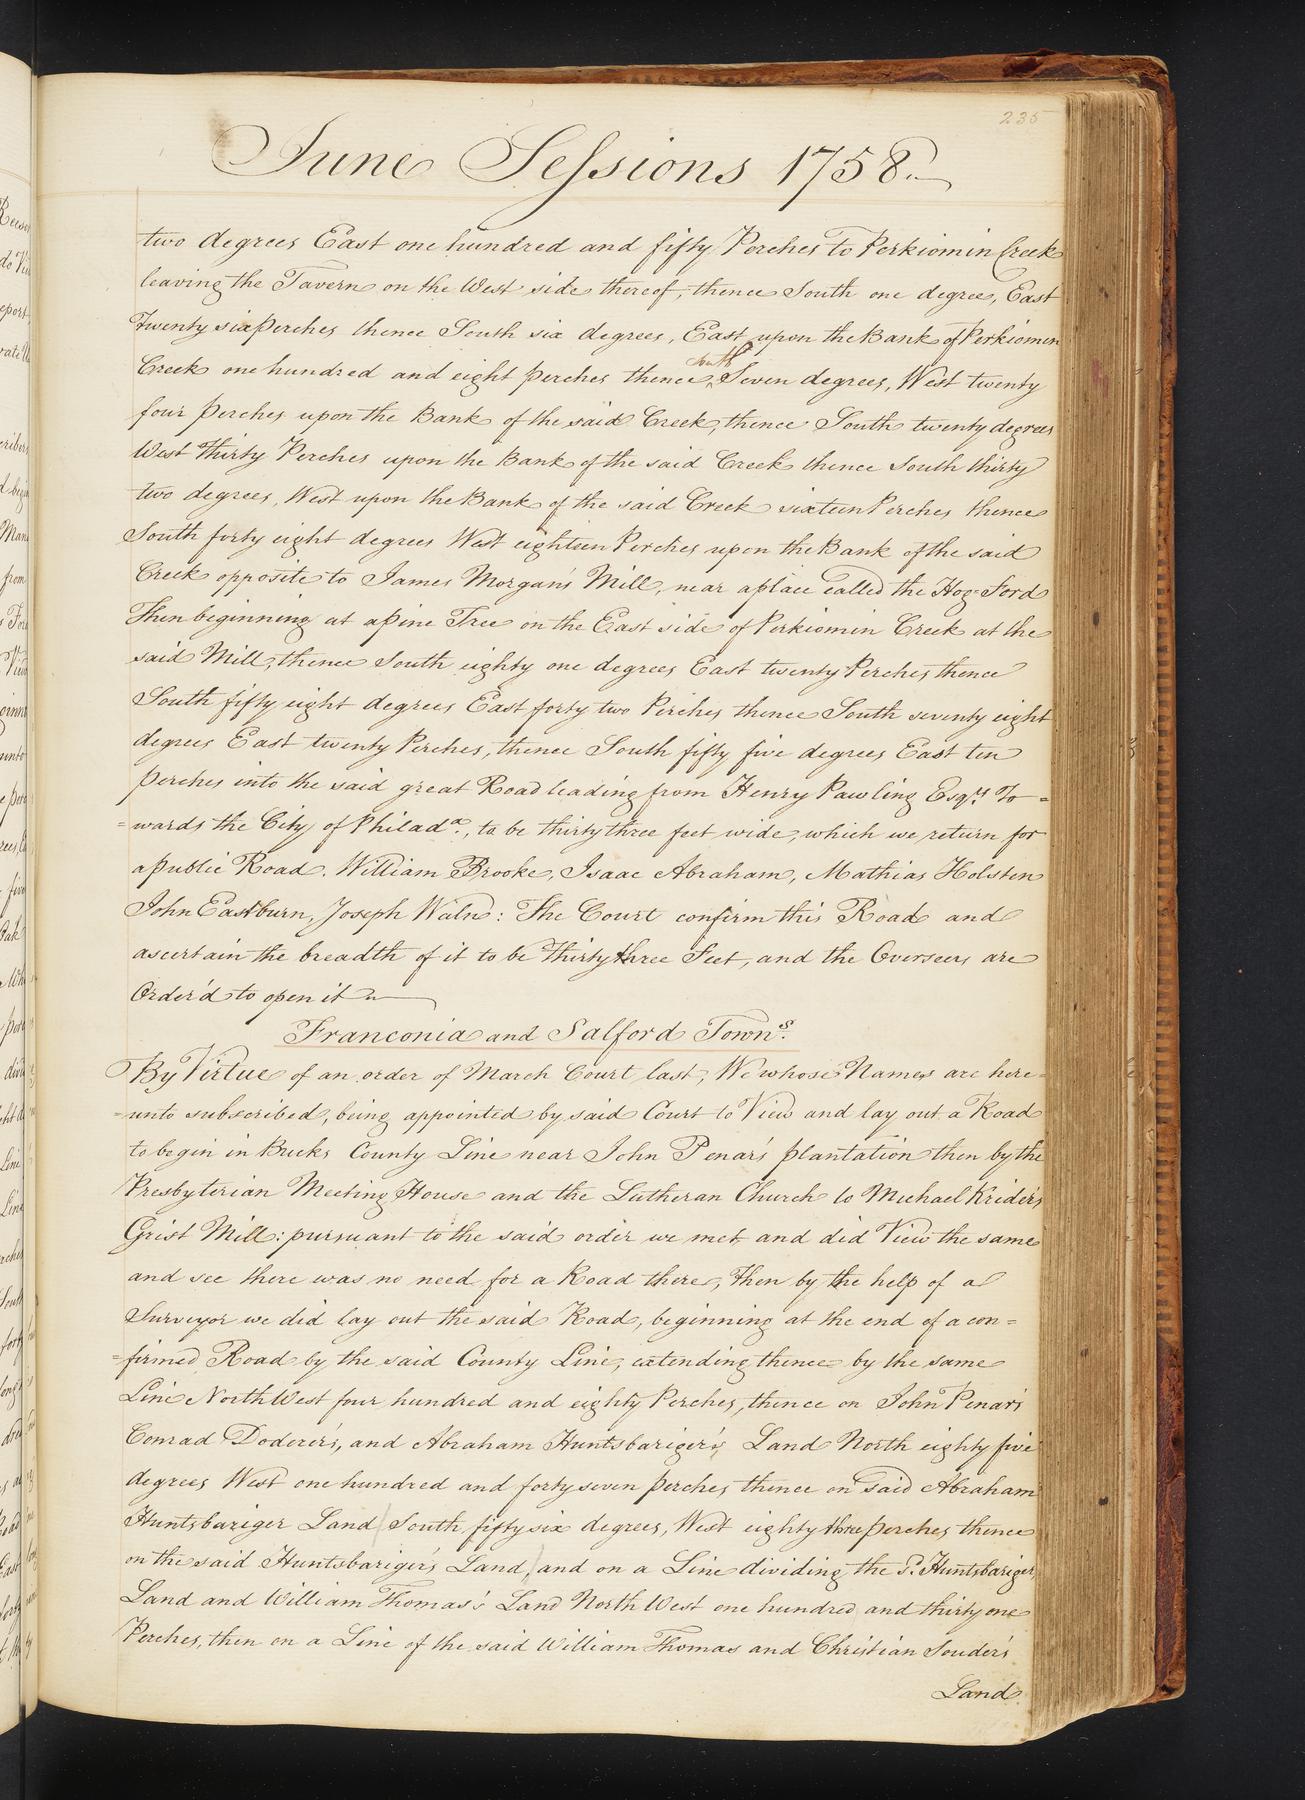 235
June Sessions 1758.
two degrees East one hundred and fifty Perches to Perkiomin Creek
leaving the Tavern on the West side thereof, thence South one degree, East
Twenty six perches thence South six degrees, East upon the Bank of Perkiomen
south
Creek one hundred and eight perches thence ^ Seven degrees, West twenty
four perches upon the Bank of the said Creek, thence South twenty degrees
West Thirty Perches upon the Bank of the said Creek thence South thirty
two degrees, West upon the Bank of the said Creek sixteen Perches thence
South forty eight degrees West eighteen Perches upon the Bank of the said
Creek opposite to James Morgan's Mill, near a place Called the Hog=Ford
Then beginning at a pine Tree on the East side of Perkiomin Creek at the
said Mill, thence South eighty one degrees East twenty Perches thence
South fifty eight degrees East forty two Perches thence South seventy eight
degrees East twenty Perches, thence South fifty five degrees East ten
perches into the said great Road leading from Henry Pawling Esqrs. To=
=wards the City of Philada., to be thirty three feet wide, which we return for
a public Road. William Brooke, Isaac Abraham, Mathias Holsten
John Eastburn, Joseph Waln: The Court confirm this Road and
ascertain the breadth of it to be Thirty three Feet, and the Overseers are
Order'd to open it
Franconia and Salford Towns.
By Virtue of an order of March Court last, We whose Names are here=
=unto subscribed, being appointed by said Court to View and lay out a Road
to begin in Bucks County Line near John Penar's plantation then by the
Presbyterian Meeting House and the Lutheran Church to Michael Krider's
Grist Mill: pursuant to the said order we met and did View the same
and see there was no need for a Road there, Then by the help of a
Surveyor we did lay out the said Road, beginning at the end of a con=
=firmed Road by the said County Line, extending thence by the same
Line North West four hundred and eighty Perches, thence on John Penar's
Conrad Doderer's, and Abraham Huntsbariger's Land North eighty five
degrees West one hundred and forty seven perches thence on said Abraham
Huntsbariger Land South fifty six degrees, West eighty three perches thence
on the said Huntsbariger's Land, and on a Line dividing the sd. Huntsbariger
Land and William Thomas's Land North West one hundred and thirty one
Perches, then on a Line of the said William Thomas and Christian Souder's
Land